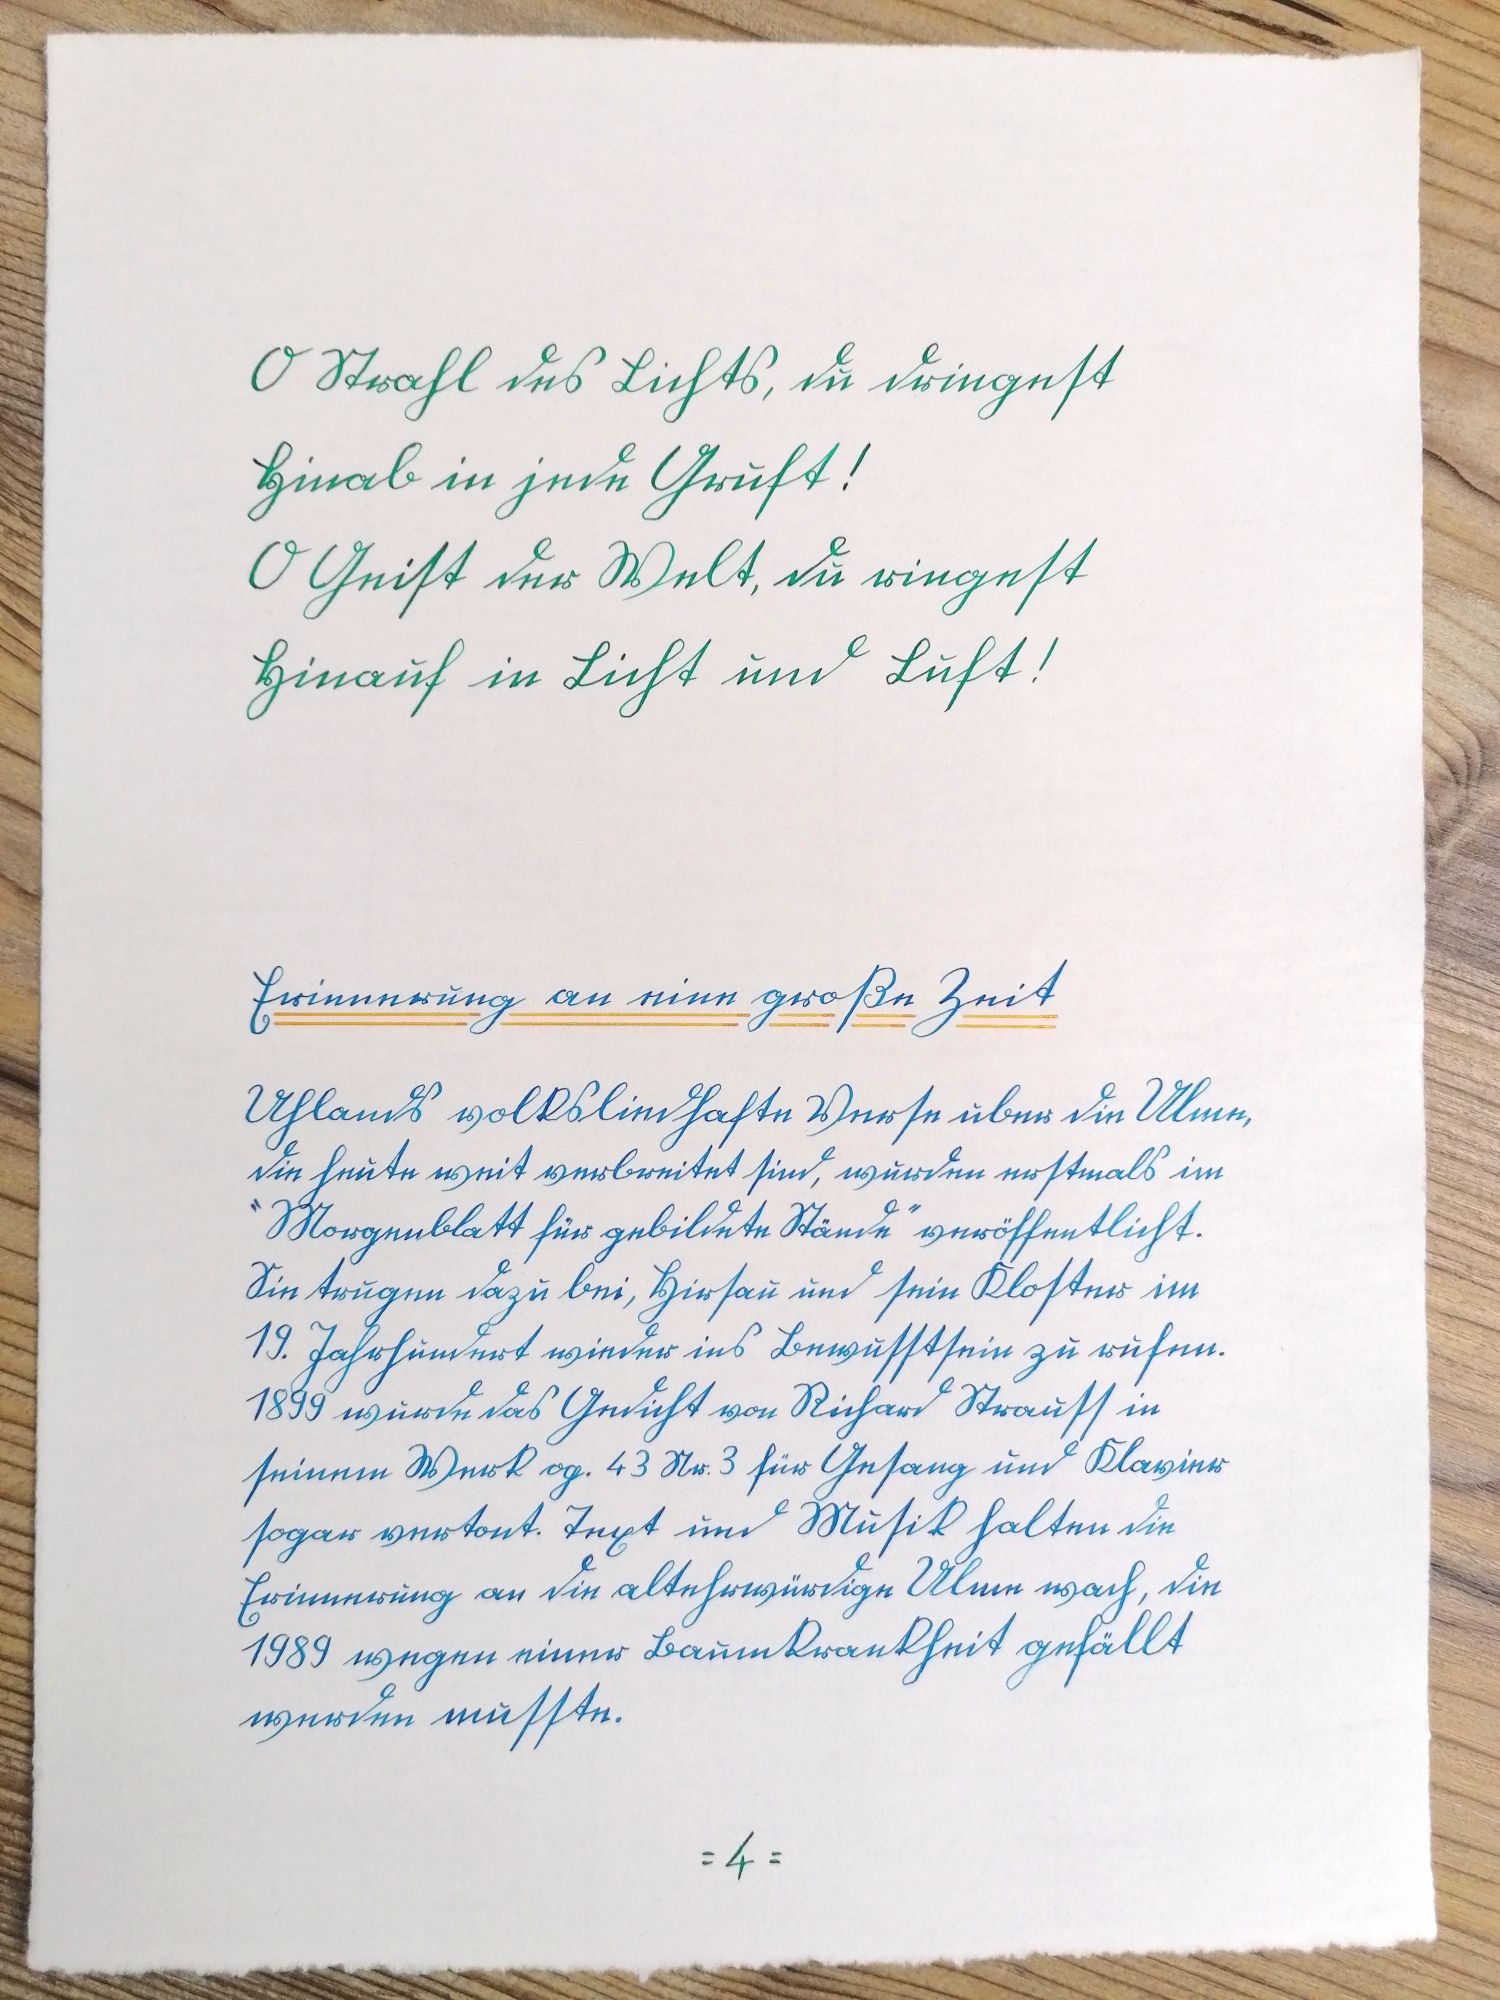 O Strahl des Lichts, du dringest
Hinab in jede Gruft!
O Geist der Welt, du ringest
Hinauf in Licht und Luft!
Erinnerung an eine große Zeit
Uhlands volksliedhafte Verse über die Ulme,
die heute weit verbreitet sind, wurden erstmals im
"Morgenblatt für gebildete Stände" veröffentlicht.
Sie trugen dazu bei, Hirsau und sein Kloster im
19. Jahrhundert wieder ins Bewusstsein zu rufen.
1899 wurde das Gedicht von Richard Strauss in
seinem Werk op. 43 Nr. 3 für Gesang und Klavier
sogar vertont. Text und Musik halten die
Erinnerung an die altehrwürdige Ulme wach, die
1989 wegen einer Baumkrankheit gefällt
werden musste.
= 4 =